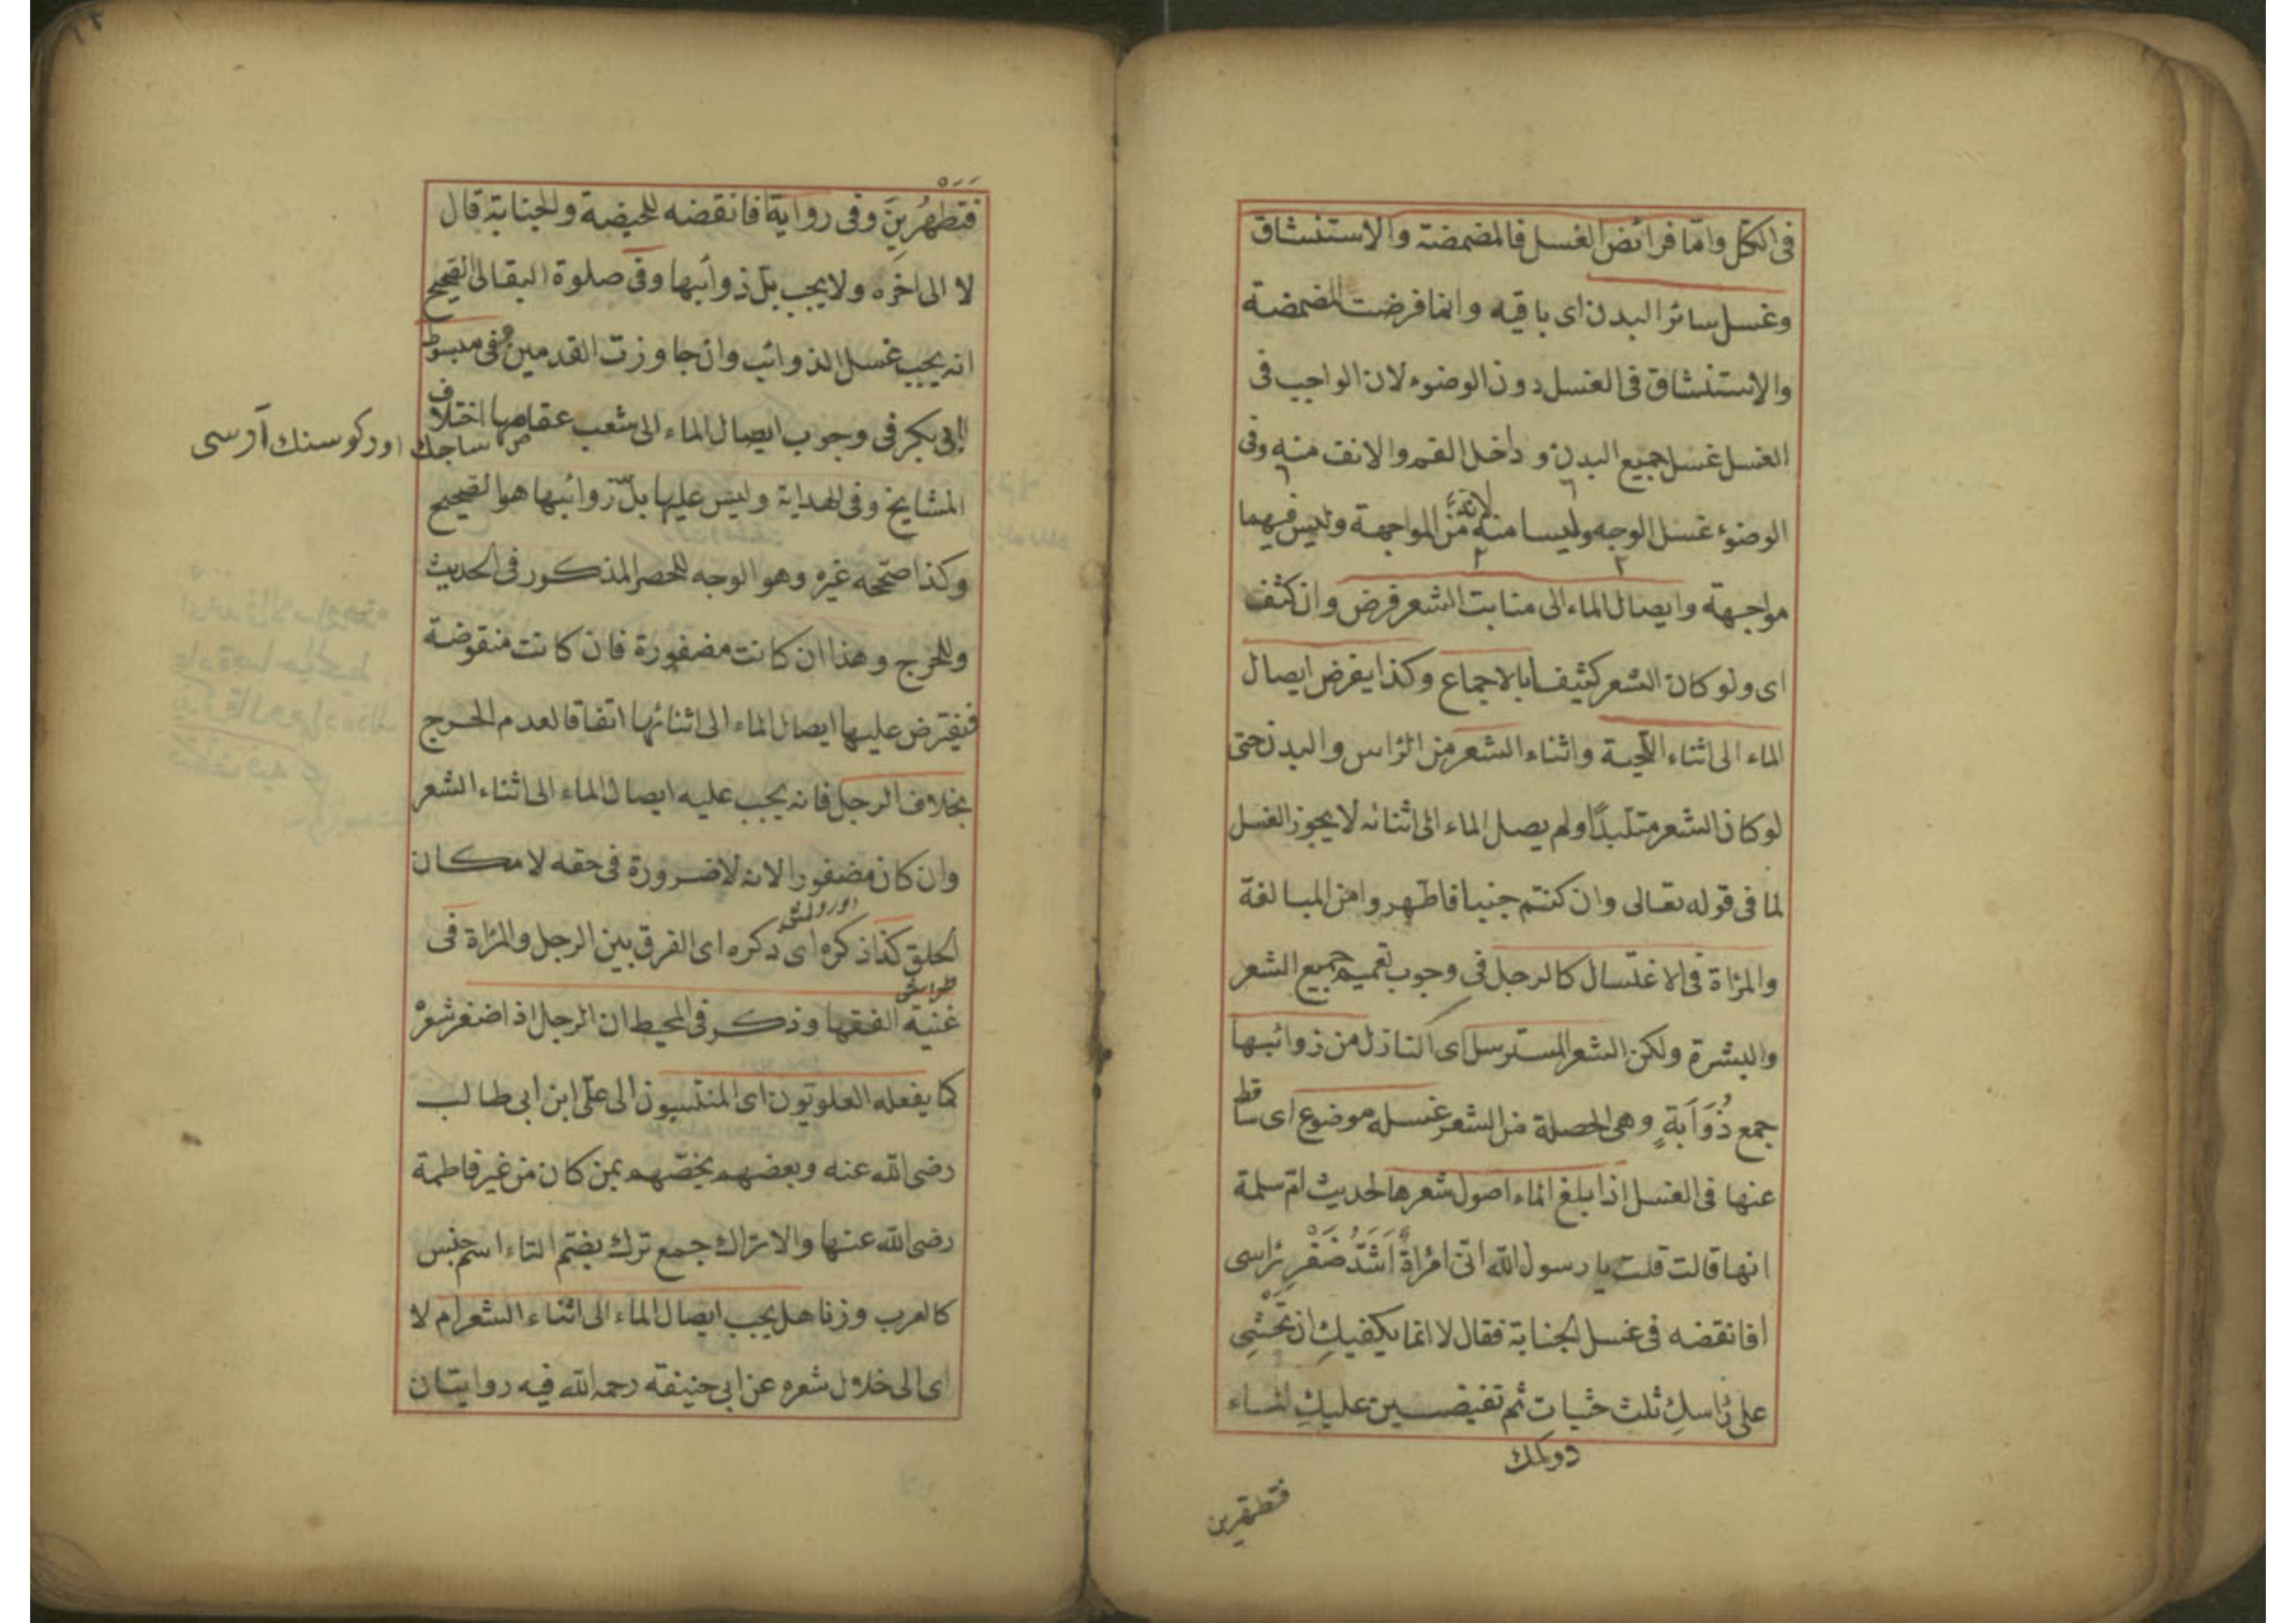 فى الكل واما فرائض الغسل فالمضمضة والاستنشاق
وغسل سائر البدن اى باقيه وانما فرضت المضمضة
والاستنشاق فى الغسل دون الوضوء لان الواجب فى
الغسل غسل جميع البدن و داخل الفم والانف منه وفى
الوضوء غسل الوجه وليسا منه لانه من المواجهة وليس فيهما
مواجهة وايصال الماء الى منابت الشعر فرض وان كثف
اى ولو كان الشعر كثيفا بالاجماع وكذا يفرض ايصال
الماء الى اثناء اللحية واثناء الشعر من الراس والبدن حتى
لو كان الشعر متلبدًا ولم يصل الماء الى اثنائه لا يجوز الغسل
لما فى قوله تعالى وان كنتم جنبا فاطهروا من المبالغة
والمرٔاة فى الاغتسال كالرجل فى وجوب تعميم جميع الشعر
والبشرة ولكن الشعر المسترسل اى النازل من ذوائبها
جمع ذُوَابَةٍ وهى الخصلة من الشعر غسله موضوع اى ساقط
عنها فى الغسل اذا بلغ الماء اصول شعرها لحديث ام سلمة
انها قالت قلت يا رسول الله انى امرٔاة اَشَدُّ ضَفْرِ رٔاسى
افانقضه فى غسل الجنابة فقال لا انما يكفيكِ ان تحثى
على رٔاسكِ ثلث حثيات ثم تفيضين عليكِ الماء
دوكمك
فتطهرين
١٢
فتطهُرِينَ وفى رواية افانقضه للحيضة والجنابة قال
لا الى اخره ولا يجب بلّ ذوائبها وفى صلوة البقالى الصحيح
انه يجب غسل الذوائب وان جاوزت القدمين وفى مبسوط
ابى بكر فى وجوب ايصال الماء الى شعب عقاصها اختلاف
ساجك اوركوسنك آرسى
المشايخ وفى الهداية وليس عليها بلّ ذوائبها هو الصحيح
وكذا صححه غيره وهو الوجه للحصر المذكور فى الحديث
وللحرج وهذا ان كانت مضفورة فان كانت منقوضة
فيفترض عليها ايصال الماء الى اثنائها اتفاقا لعدم الحرج
بخلاف الرجل فانه يجب عليه ايصال الماء الى اثناء الشعر
وان كان مضفورا لانه لا ضرورة فى حقه لامكان
الحلق كذا ذكره اى ذكره اى الفرق بين الرجل والمرٔاة فى
غنية الفقها وذكر فى المحيط ان الرجل اذا ضفر شعره
كما يفعله العلويون اى المنتسبون الى علىّ ابن ابى طالب
رضى الله عنه وبعضهم يخصّهم بمن كان من غير فاطمة
رضى الله عنها والاتراك جمع ترك بضم التاء اسم جنس
كالعرب وزنا هل يجب ايصال الماء الى اثناء الشعر ام لا
اى الى خلال شعره عن ابى حنيفة رحمه الله فيه روايتان